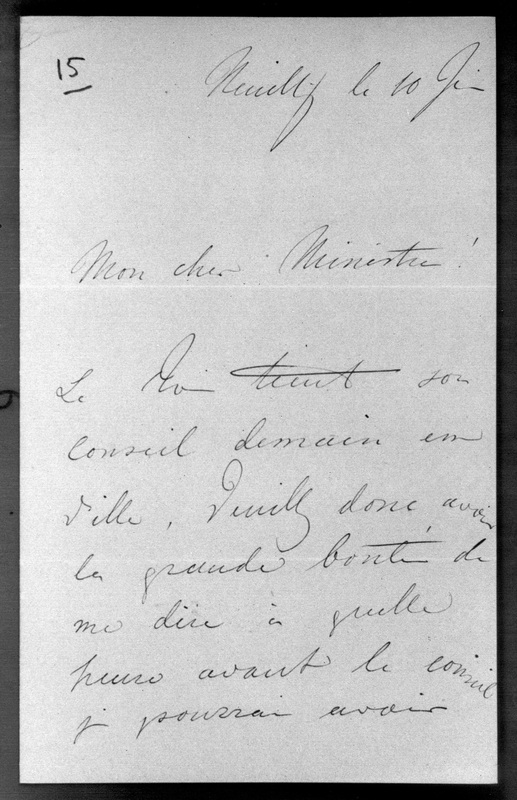 15
Neuilly le 10 Jin
Mon cher Ministre!
Le Roi tient son
conseil demain en
ville. Veuillz donc avoir
la grande bonté de
me dire à quelle
heure avant le conseil
je pourrai avoir